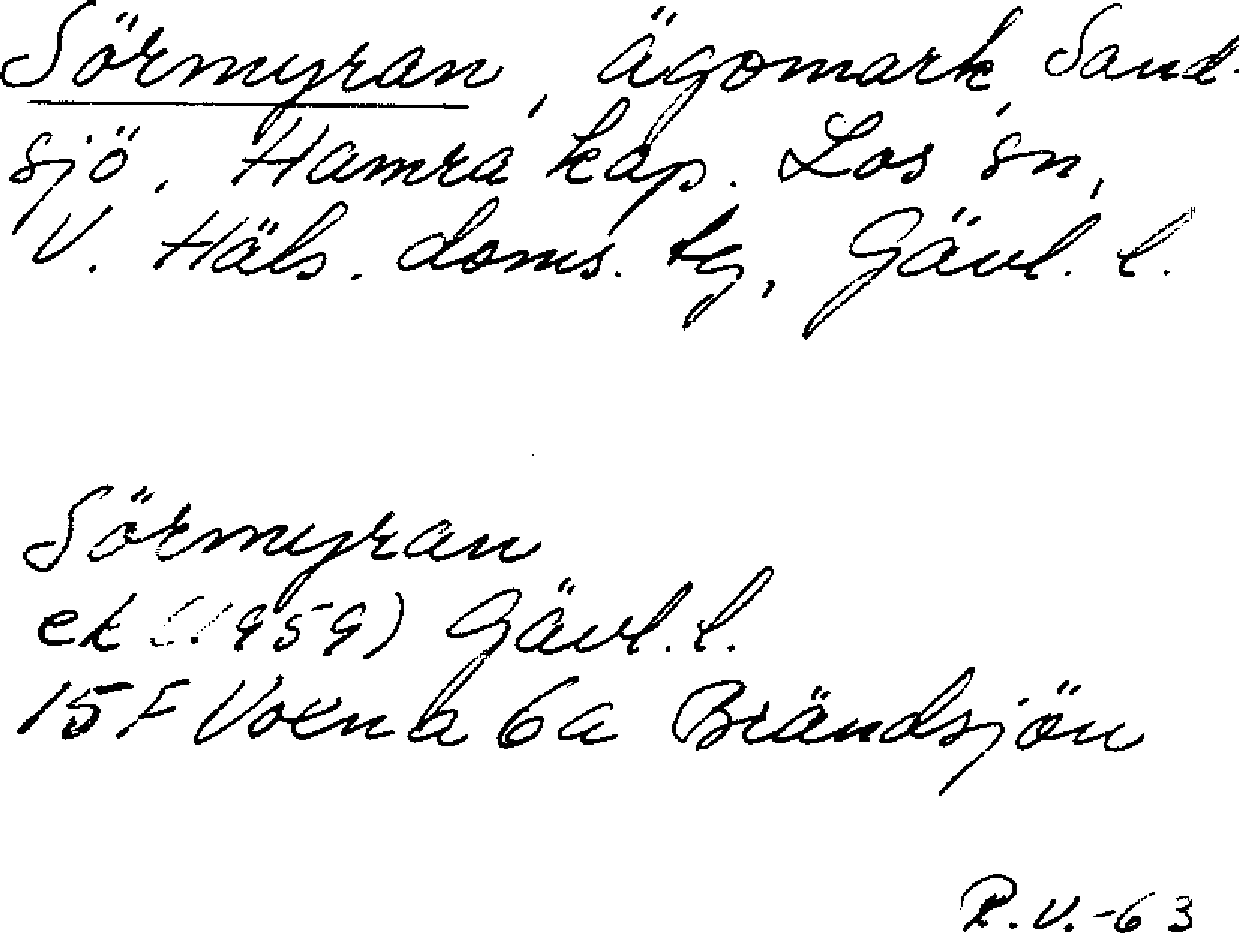 Sörmyran, ägomark, Sand-
sjö, Hamra kap. Los sn,
V. Häls. doms. tg, Gävl. l.
Sörmyran
ek (1959) Gävl. l.
15 F Voxna 6a Brändsjön
R.V.-63